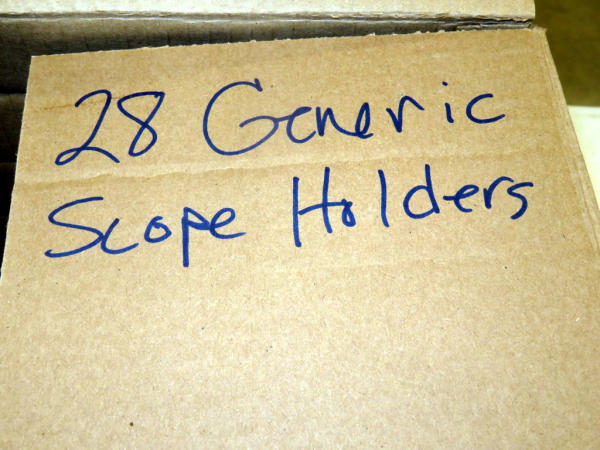 28 Generic
Scope Holders